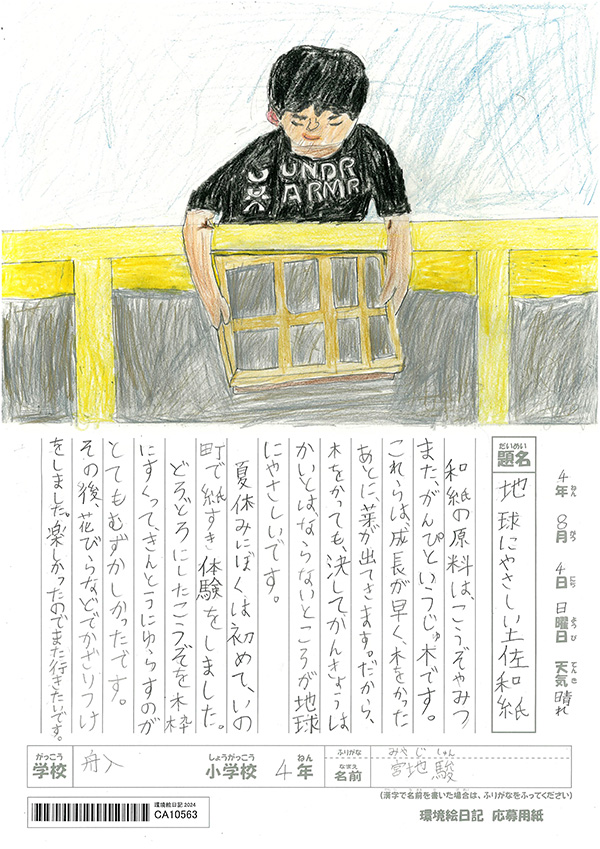 UNDR
ARMR
4年 8月 4日 日曜日 天気 晴れ
ねん がつ にち ようび てんき
だいめい
題名 地球にやさしい土佐和紙
和紙の原料は、こうぞやみつ
また、がんぴというじゅ木です。
これらは、成長が早く、木をかった
あとに、葉が出てきます。だから、
木をかっても、決してがんきょうは
かいとはならないところが地球
にやさしいです。
夏休みにぼくは初めて、いの
町で紙すき体験をしました。
どろどろにしたこうぞを木枠
にすくって、きんとうにゆらすのが
とてもむずかしかったです。
その後、花びらなどでかざりつけ
をしました。楽しかったのでまた行きたいです。
がっこう しょうがっこう ねん
学校 舟入 小学校 4年
ふりがな みやじ しゅん
なまえ
名前 宮地 駿
(漢字で名前を書いた場合は、ふりがなをふってください)
環境絵日記 2024
CA10563
環境絵日記 応募用紙